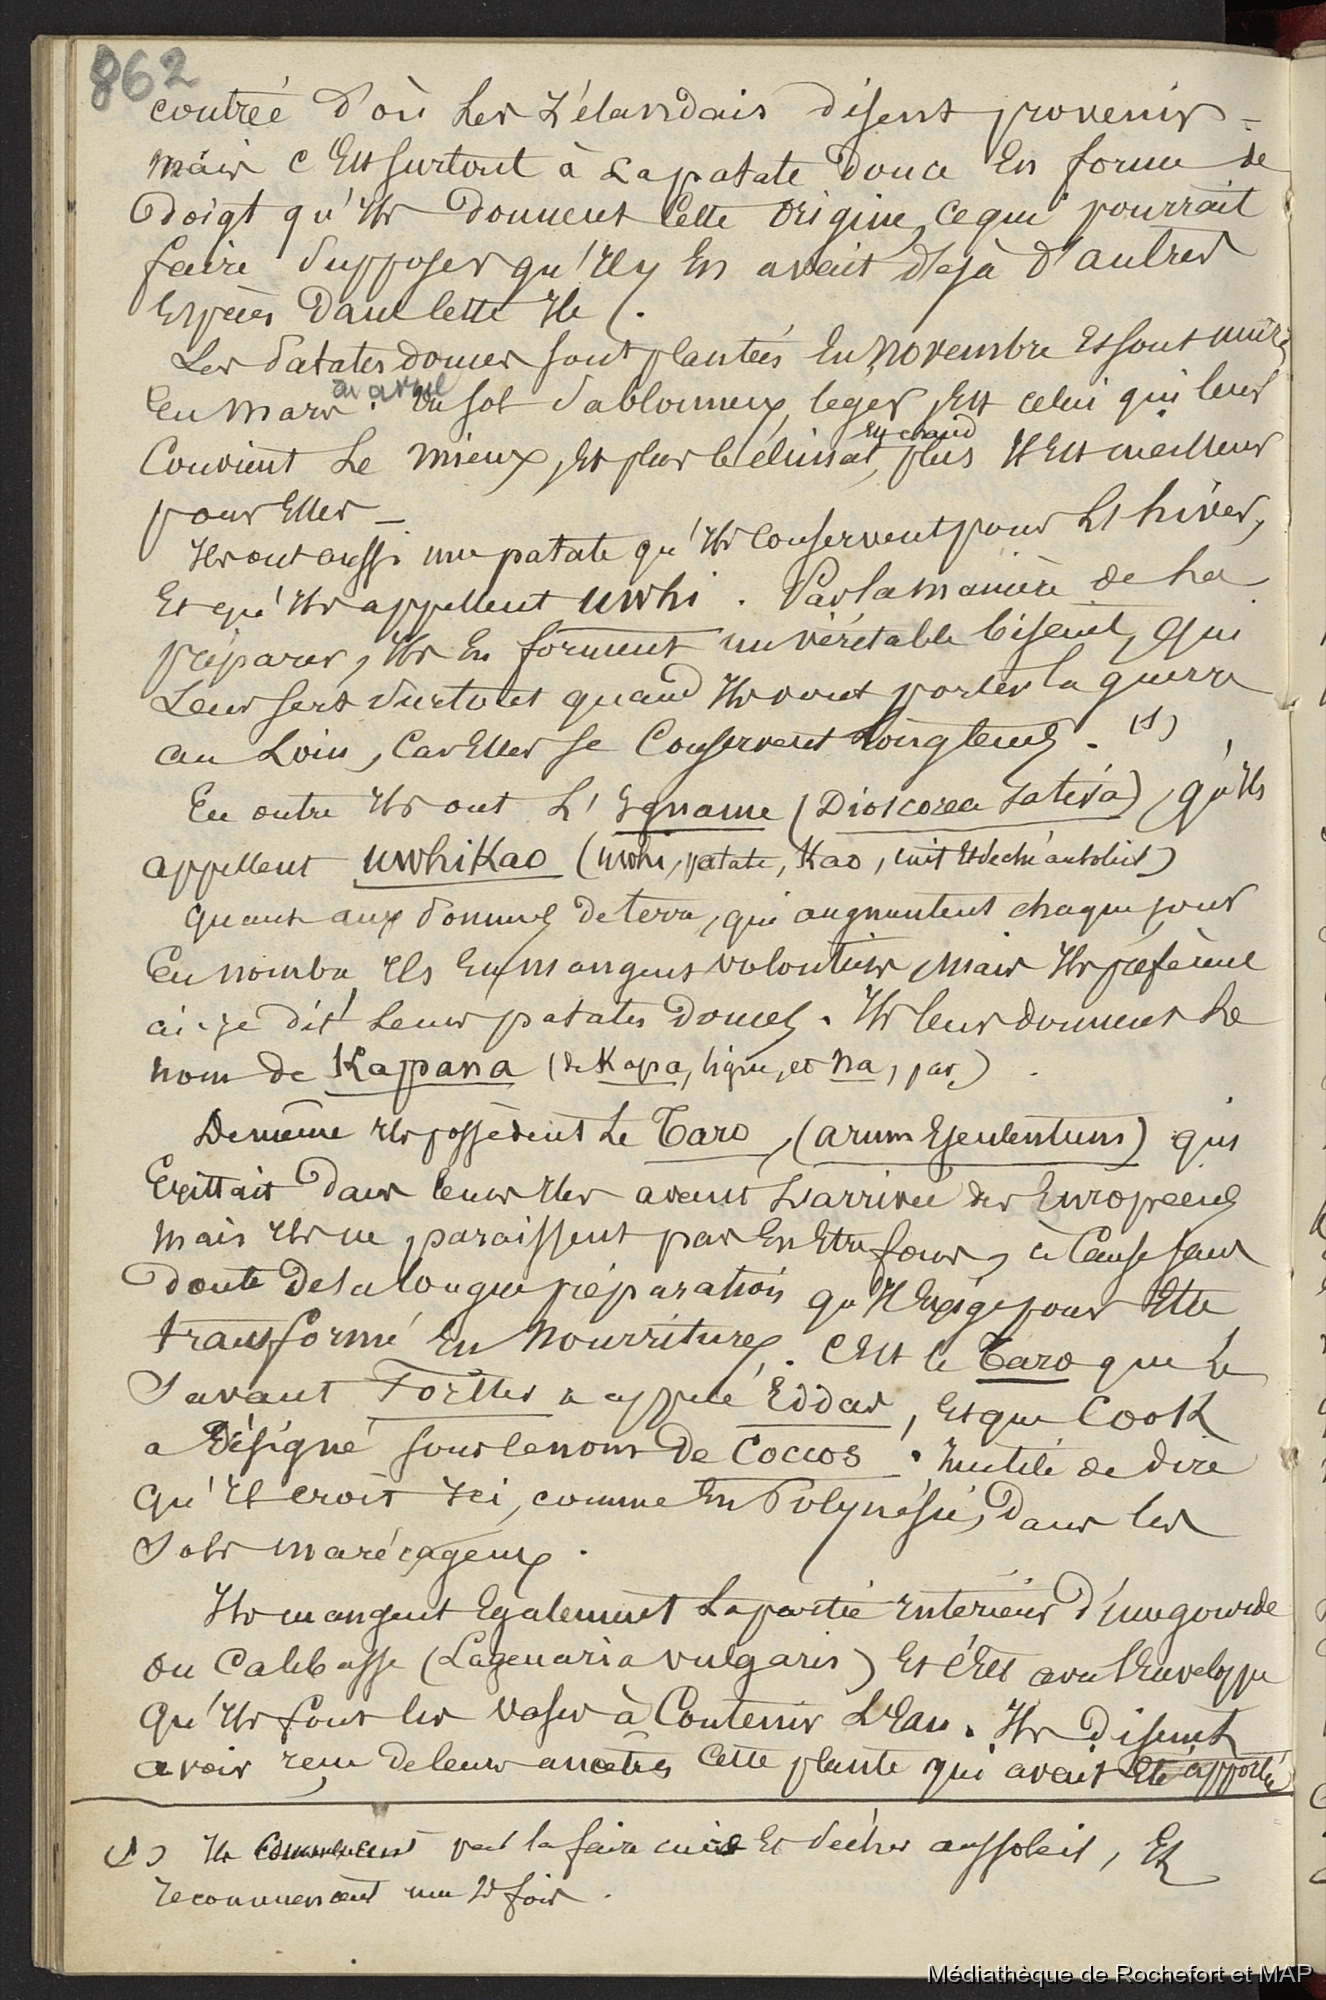 862
contrée d'où les Zélandais disent provenir -
mais c'est surtout à la patate douce en forme de
doigt qu'ils donnent cette origine, ce qui pourrait
faire supposer qu'il y en avait déjà d'autres
espèces dans cette île.
Les patates douces sont plantées en novembre et sont mûres
en mars ou avril. Un sol sablonneux, leger, est celui qui leur
convient le mieux, et plus le climat est chaud, plus il est meilleur
pour elles -
Ils ont aussi une patate qu'ils conservent pour l'hiver,
et qu'ils appellent uwhi. Par la manière de la
préparer, ils en forment un véritable biscuit, qui
leur sert surtout quand ils vont porter la guerre
au loin, car elles se conservent longtems. (1)
En outre ils ont l'Igname (Dioscorea sativa), qu'ils
appellent uwhiKao (uwhi, patate, Kao, cuit et séché au soleil)
quant aux pommes de terre, qui augmentent chaque jour
en nombre, ils en mangent volontiers, mais ils préfèrent
ai-je dit leurs patates douces. Ils leur donnent le
nom de Kapana (de Kapa, ligne, et na, par).
De même ils possèdent le Taro, (arum esculentum) qui
existait dans leurs îles avant l'arrivée des Européens
mais ils ne paraissent pas en être fous, à cause sans
doute de la longue préparation qu'il exige pour être
transformé en nourriture. C'est le Taro que le
savant Forster a appelé Eddas, et que Cook
a désigné sous le nom de Coccos. Inutile de dire
qu'il croît ici, comme en Polynésie, dans les
sols marécageux.
Ils mangent également la partie intérieure d'une gourde
ou calebasse (Lagenaria vulgaris) et c'est avec l'enveloppe
qu'ils font les vases à contenir l'eau. Ils disent
avoir reçu de leurs ancêtres cette plante qui avait été apportée
(1) Ils commencent par la faire cuire et sécher au soleil, et
recommencent une 2e fois.
Médiathèque de Rochefort et MAP